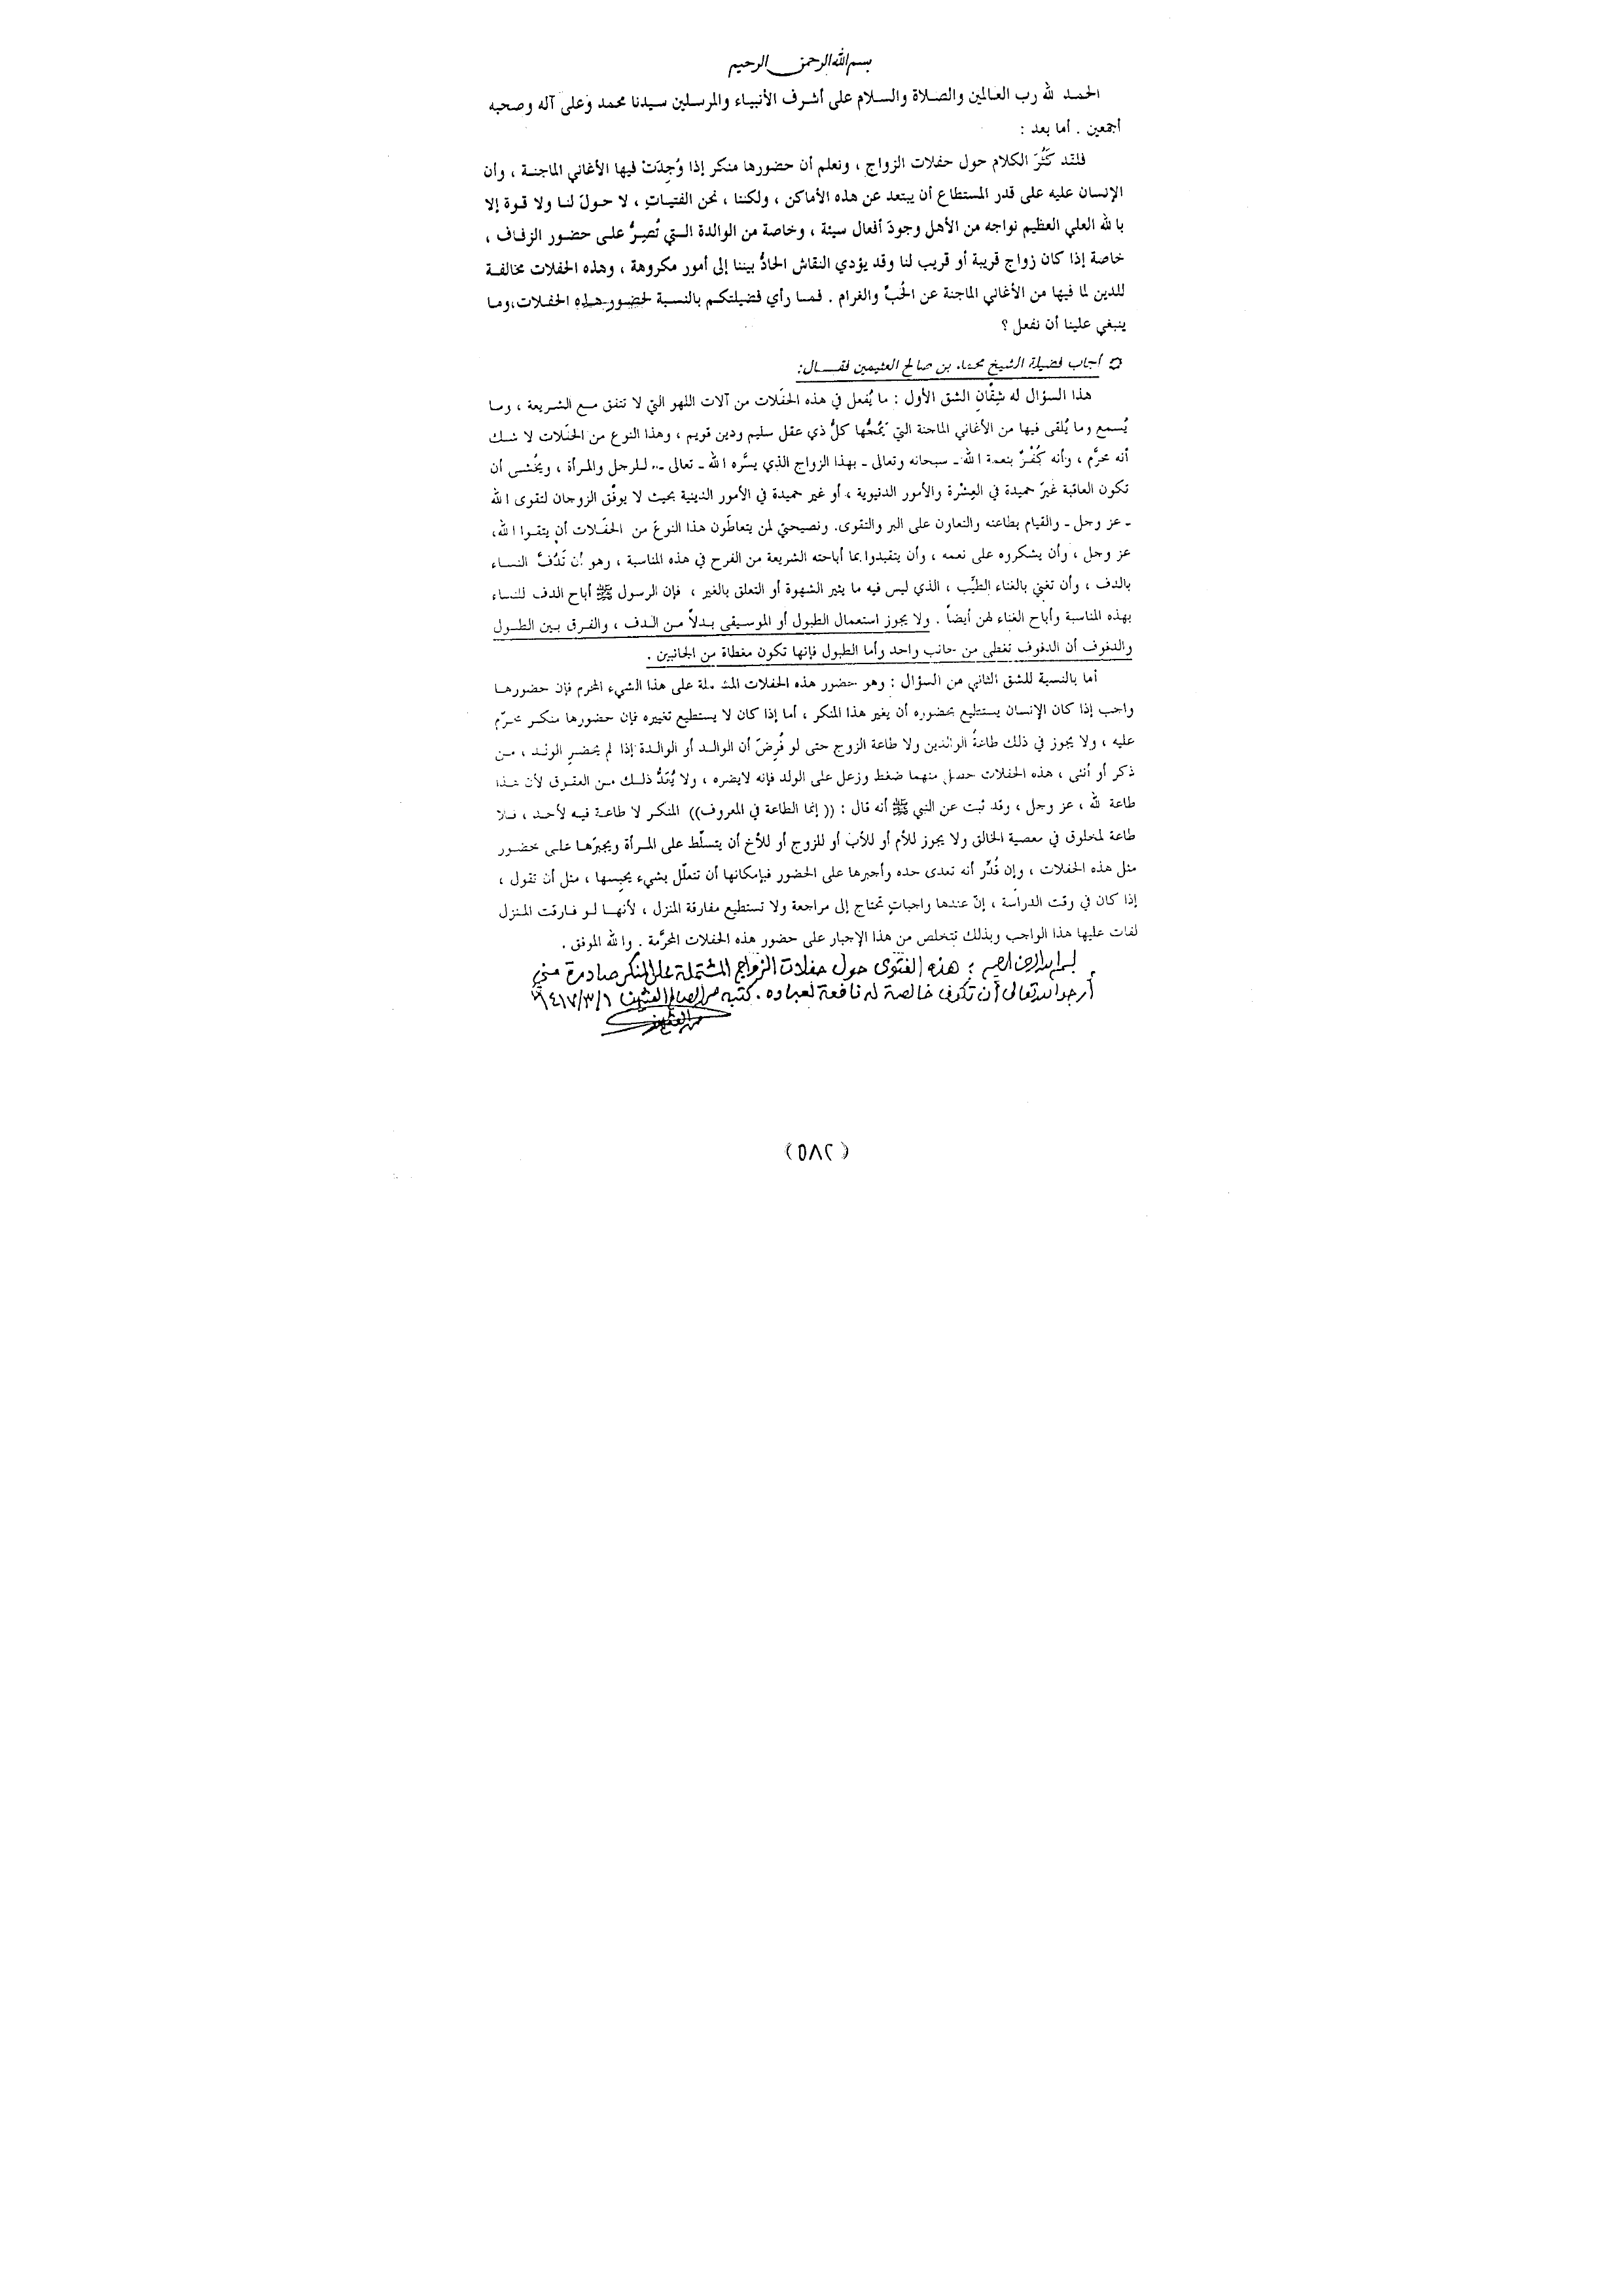 بسم الله الرحمن الرحيم
الحمد لله رب العالمين والصلاة والسلام على أشرف الأنبياء والمرسلين سيدنا محمد وعلى آله وصحبه
أجمعين . أما بعد :
فلقد كَثُرَ الكلام حول حفلات الزواج ، ونعلم أن حضورها منكر إذا وُجِدَتْ فيها الأغاني الماجنة ، وأن
الإنسان عليه على قدر المستطاع أن يبتعد عن هذه الأماكن ، ولكننا ، نحن الفتيات ، لا حولَ لنا ولا قوة إلا
بالله العلي العظيم نواجه من الأهل وجودَ أفعال سيئة ، وخاصة من الوالدة التي تُصِرُّ على حضور الزفاف ،
خاصة إذا كان زواج قريبة أو قريب لنا وقد يؤدي النقاش الحادُّ بيننا إلى أمور مكروهة ، وهذه الحفلات مخالفة
للدين لما فيها من الأغاني الماجنة عن الحُبِّ والغرام . فما رأي فضيلتكم بالنسبة لحضور هذه الحفلات،وما
ينبغي علينا أن نفعل ؟
¤ أجاب فضيلة الشيخ محمد بن صالح العثيمين فقال:
هذا السؤال له شِقَّانِ الشق الأول : ما يُفعل في هذه الحفَلات من آلات اللهو التي لا تتفق مع الشريعة ، وما
يُسمع وما يُلقى فيها من الأغاني الماجنة التي يَمُجُّها كلُّ ذي عقل سليم ودين قويم ، وهذا النوع من الحفَلات لا شك
أنه محرَّم ، وأنه كُفْرٌ بنعمة الله ـ سبحانه وتعالى ـ بهذا الزواج الذي يسَّره الله ـ تعالى ـ للرجل والمرأة ، ويُخشى أن
تكون العاقبة غيرَ حميدة في العِشْرة والأمور الدنيوية ، أو غير حميدة في الأمور الدينية بحيث لا يوفّق الزوجان لتقوى الله
ـ عز وجل ـ والقيام بطاعته والتعاون على البر والتقوى. ونصيحتي لمن يتعاطَون هذا النوعَ من الحفَلات أن يتقوا الله،
عز وجل ، وأن يشكروه على نعمه ، وأن يتقيدوا بما أباحته الشريعة من الفرح في هذه المناسبة ، وهو أن تَدُفَّ النساء
بالدف ، وأن تغني بالغناء الطيِّب ، الذي ليس فيه ما يثير الشهوة أو التعلق بالغير ، فإن الرسول ﷺ أباح الدف للنساء
بهذه المناسبة وأباح الغناء لهن أيضاً . ولا يجوز استعمال الطبول أو الموسيقى بدلاً من الدف ، والفرق بين الطبول
والدفوف أن الدفوف تغطى من جانب واحد وأما الطبول فإنها تكون مغطاة من الجانبين .
أما بالنسبة للشق الثاني من السؤال : وهو حضور هذه الحفلات المشتملة على هذا الشيء المحرم فإن حضورها
واجب إذا كان الإنسان يستطيع بحضوره أن يغير هذا المنكر ، أما إذا كان لا يستطيع تغييره فإن حضورها منكر محرّم
عليه ، ولا يجوز في ذلك طاعةُ الوالدين ولا طاعة الزوج حتى لو فُرِضَ أن الوالد أو الوالدة إذا لم يحضر الولد ، من
ذكر أو أنثى ، هذه الحفلات حصل منهما ضغط وزعل على الولد فإنه لايضره ، ولا يُعَدُّ ذلك من العقوق لأن هذا
طاعة لله ، عز وجل ، وقد ثبت عن النبي ﷺ أنه قال : (( إنما الطاعة في المعروف)) المنكر لا طاعة فيه لأحد ، فلا
طاعة لمخلوق في معصية الخالق ولا يجوز للأم أو للأب أو للزوج أو للأخ أن يتسلّط على المرأة ويجبرَها على حضور
مثل هذه الحفلات ، وإن قُدِّر أنه تعدى حده وأجبرها على الحضور فبإمكانها أن تتعلّل بشيء يحبِسها ، مثل أن تقول ،
إذا كان في وقت الدراسة ، إنّ عندها واجباتٍ تحتاج إلى مراجعة ولا تستطيع مفارقة المنزل ، لأنها لو فارقت المنزل
لفات عليها هذا الواجب وبذلك تتخلص من هذا الإجبار على حضور هذه الحفلات المحرَّمة . والله الموفق .
بسم الله الرحمن الرحيم : هذه الفتوى حول حفلات الزواج المشتملة على المنكر صادرة مني
أرجو الله تعالى أن تكون خالصة له نافعة لعباده . كتبه محمد الصالح العثيمين ١٤١٧/٣/١
محمد العثيمين
(٥٨٢)